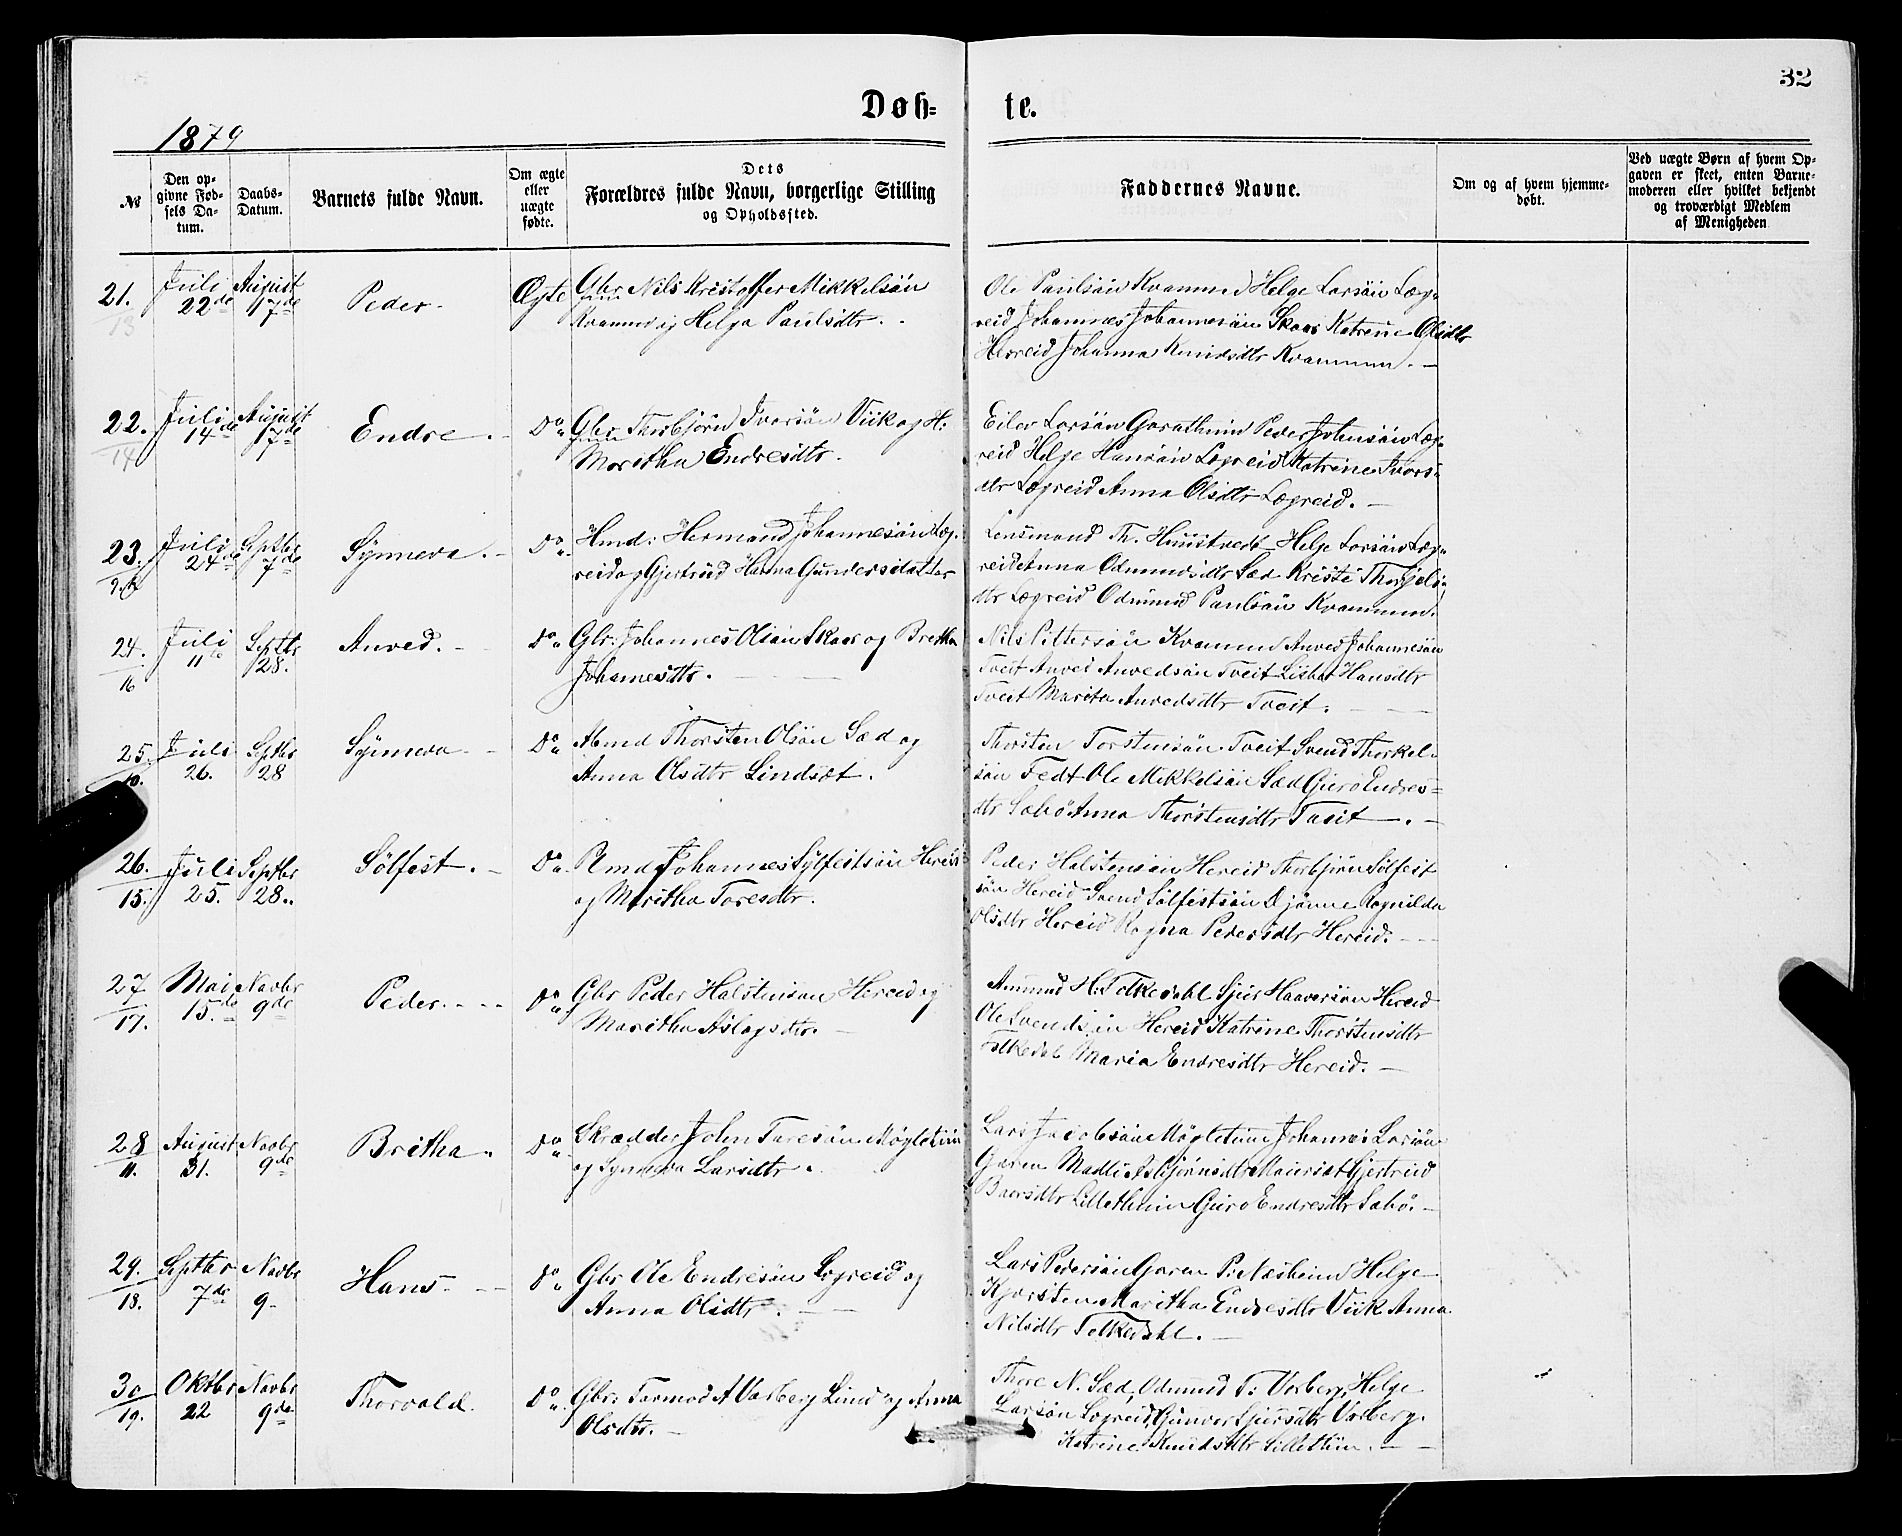 32
Døb-
te.
1879
№
Den op-
givne Fød-
sels Da-
tum.
Daabs-
Datum.
Barnets fulde Navn.
Om ægte
eller
uægte
fødte.
Dets
Forældres fulde Navn, borgerlige Stilling
og Opholdssted.
Faddernes Navne.
Om og af hvem hjemme-
døbt.
Ved uægte Børn af hvem Op-
gaven er skeet, enten Barne-
moderen eller hvilket bekjendt
og troværdigt Medlem
af Menigheden
21.
13
Juli
22de
August
17de
Peder
Ægte
Gbr Nils Kristoffer Mikkelsøn
Kvammen og Helga Paulsdtr.
Ole Paulsøn Kvammen Helge Larsøn Læg-
reid Johannes Johannesøn Skaar Katrine Olsdtr
Herreid Johanna Knudsdtr Kvammen.
22.
14
Juli
14de
August
17de
Endre.
Do
Gbr Thorbjørn Ivarsøn Viik og H:
Maritha Endresdtr.
Eilev Larsøn Garathun Peder Johnsøn Læg-
reid Helge Hansøn Lægreid Katrine Ivars-
dtr Lægreid Anna Olsdtr Lægreid.
23.
Juli
24de
Septbr
7de
Synneva.
Do
Hmd: Hermand Johannesøn Læg-
reid og Gjertrud Hanna Gundersdatter
Lensmand Th. Huustvedt Helge Larsøn Læg-
reid Anna Odmundsdtr Sæd Kristi Thorgjels-
dtr Lægreid Odmund Paulsøn Kvammen.
24.
16
Juli
11te
Septbr
28.
Anved.
Do
Gbr: Johannes Olsøn Skaar og Bretha
Johannesdtr.
Nils Pittersøn Kvammen Anved Johannesøn
Tveit Anved Anvedsøn Tveit Lisbet Hansdtr
Tveit Marita Anvedsdtr Tveit.
25.
10.
Juli
26.
Septbr
28
Synneva
Do
Thorsten Olsøn Sæd og
Anna Olsdtr Lindsæt.
Thorsten Torstensøn Tveit Svend Thorkel-
søn Tedt Ole Mikkelsøn Sæd Guro Endres-
dtr Sabø Anna Thorstensdtr Tveit.
26.
15.
Juli
25.
Septbr
28.
Sølfest.
Do
Pl.md Johannes Sylfestsøn Hereid
og Maritha Toresdtr.
Peder Halstensøn Hereid Thorbjørn Sølfest
søn Hereid Svend Sølfestsøn Djønne Ragnilda
Olsdtr Hereid Ragna Pedersdtr Hereid.
27
17.
Mai
15.de
Novbr
9de
Peder.
Do
Gbr Peder Halstensøn Hereid og
Maritha Aslagsdtr.
Ammund H: Folkedahl Sjur Haaversøn Hereid
Ole Svendsøn Hereid Katrine Thorstensdtr
Folkedal Maria Endresdtr Hereid.
28
11.
August
31.
Novbr
9de
Britha.
Do
Skrædder John Toresøn Møgletun
og Synneva Larsdtr.
Lars Jacobsøn Møgletun Johannes Larsøn
Garen Madli Asbjørnsdtr Maursæt Gjertrud
Baarsdtr Lillethun Guro Endresdtr Sabø.
29.
18.
Septbr
7de
Novbr
9
Hans.
Do
Gbr Ole Endresøn Lægreid og
Anna Olsdtr.
Lars Pedersøn Garen P: Næsheim Helge
Kjærsten Maritha Endresdtr Viik Anna
Nilsdtr Folkedahl.
30
19.
Oktbr
22
Novbr
9de
Thorvald.
Do
Gbr: Tormod A Varberg Lund og Anna
Olsdtr.
Thore N. Sæd, Odmund T: Varberg, Helge
Larsøn Lægreid, Gunvor Sjursdtr Varberg.
Katrine Knudsdtr Lillethun.